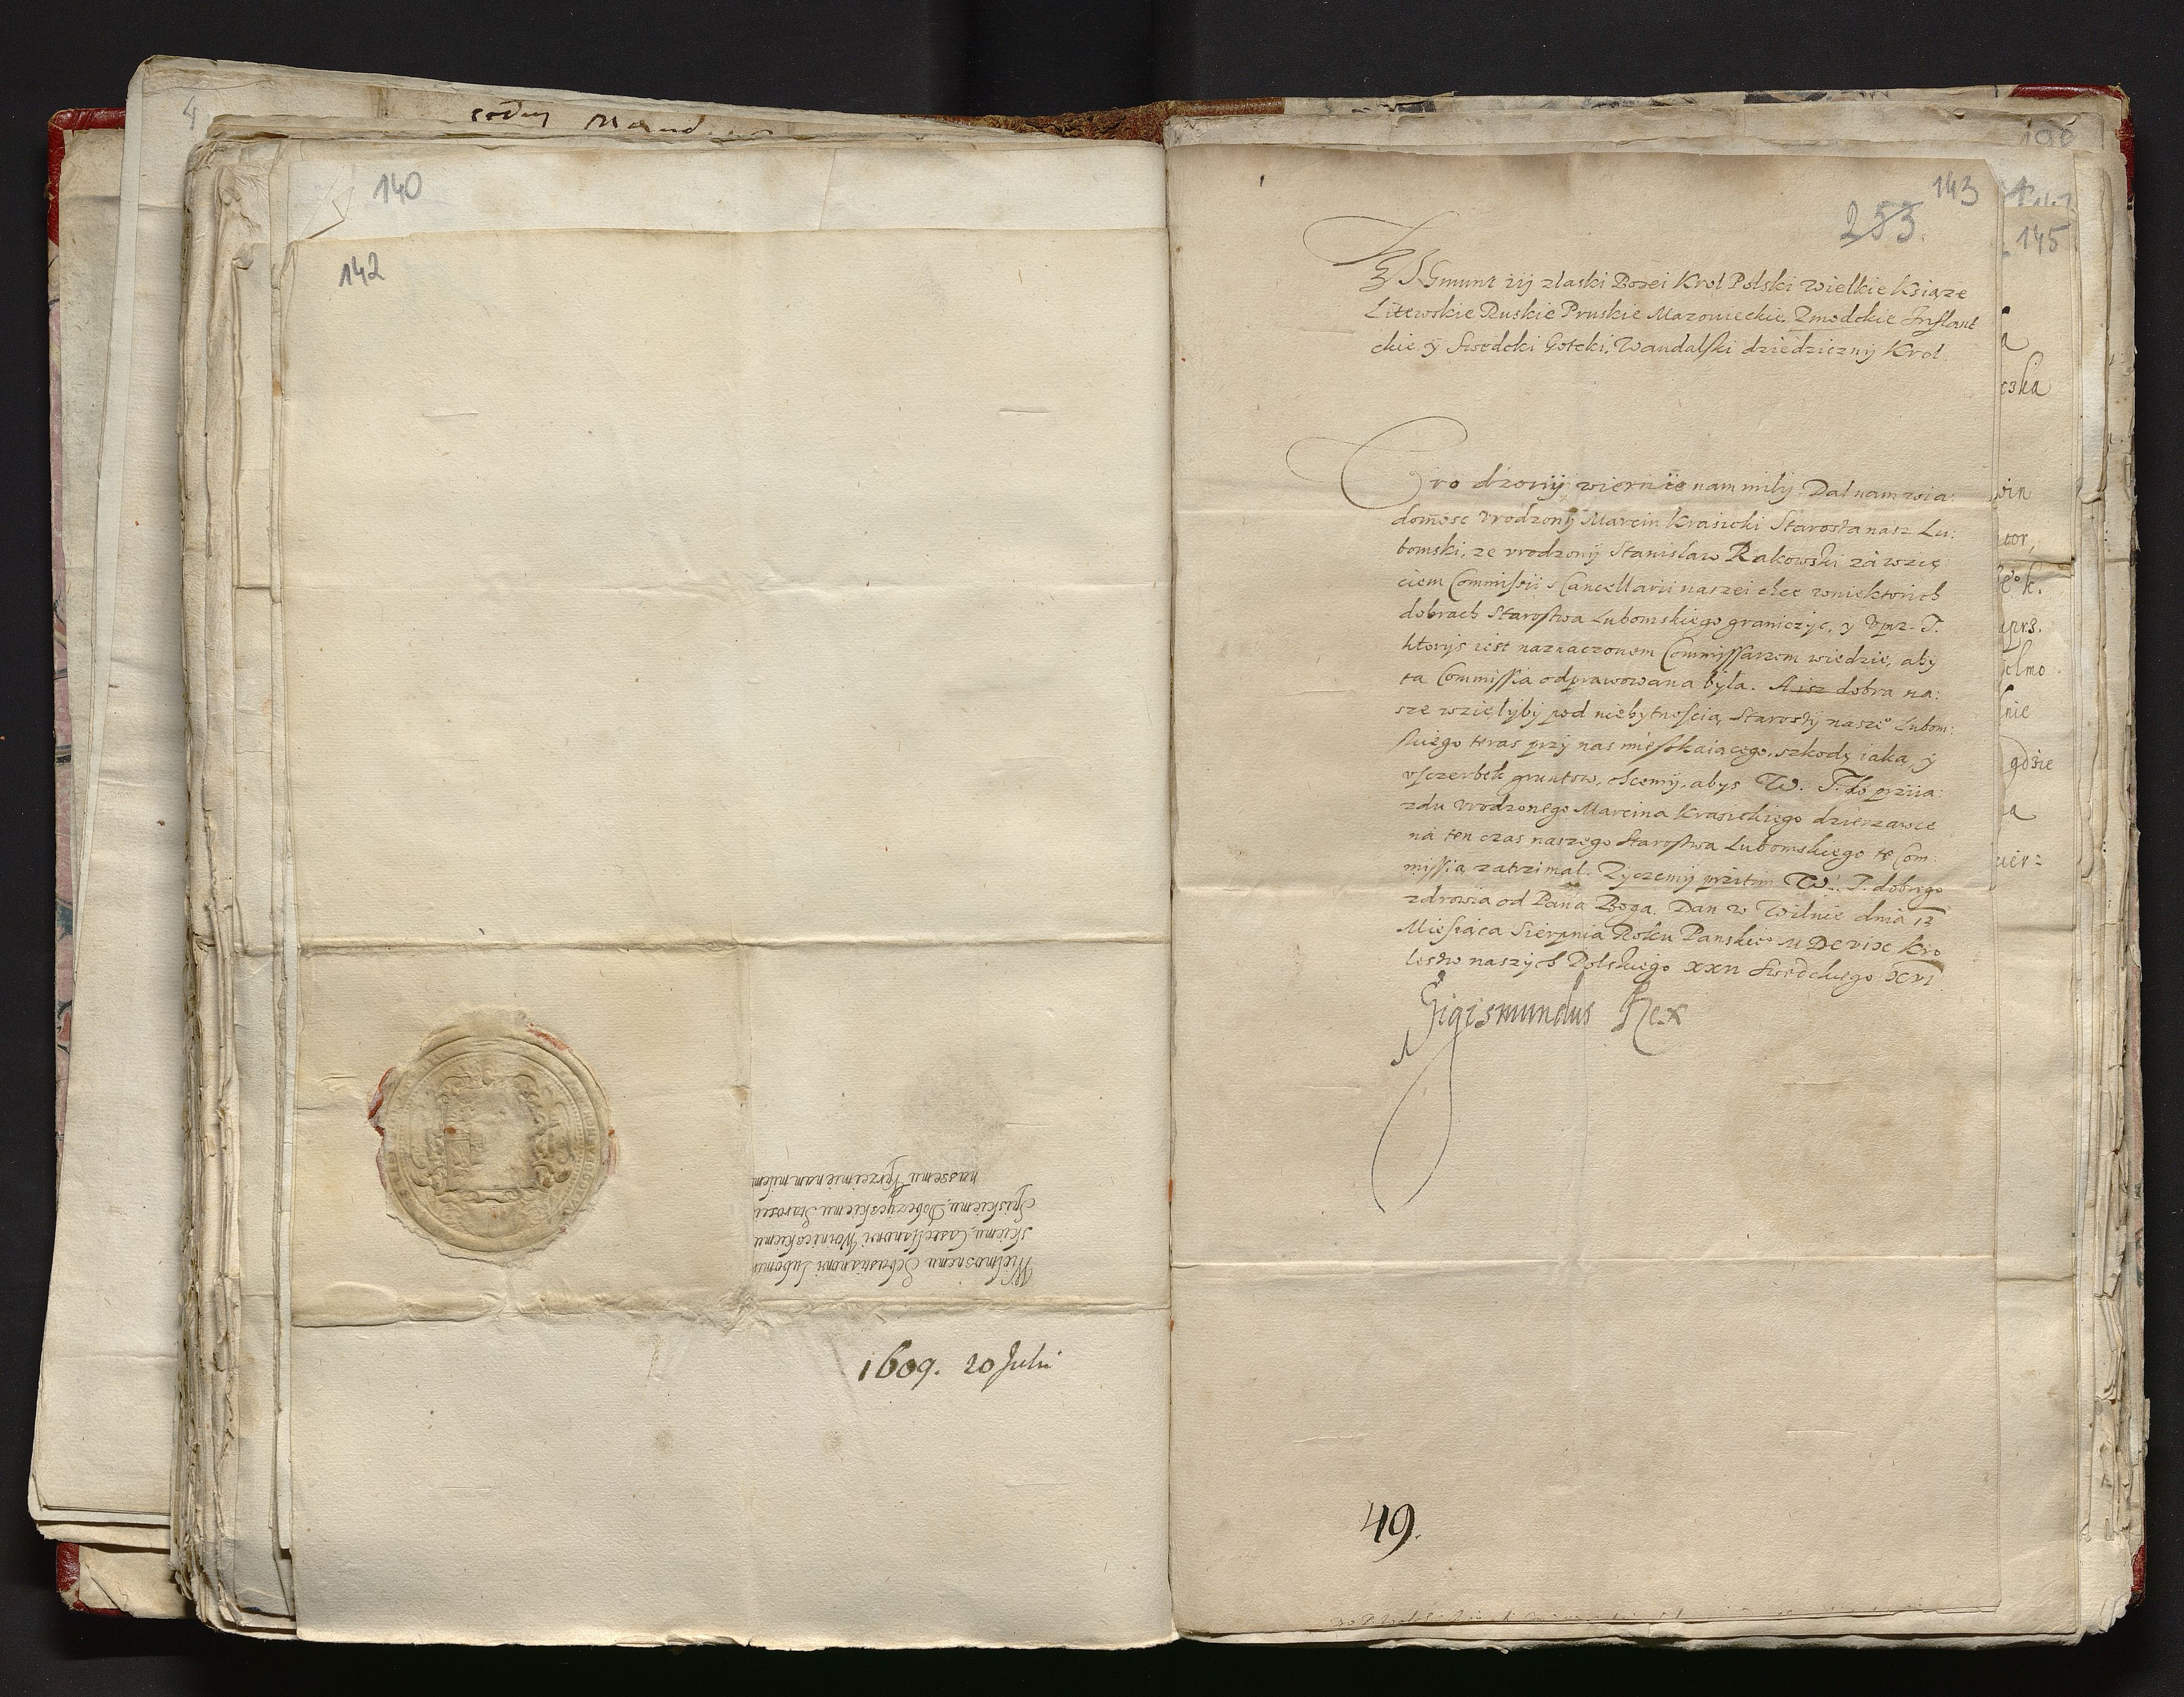 4
140
142
Wielmoznemu Sebastianowi Lubomir
skiemu, Castellanowi Woinickiemu
Spiskiemu, Dobczyckiemu Staroscie
naszemu Vprzeimie nam milemu
1609. 20 Julii
196
145
143
253.
ZYGmunt iij z laski Bozei Krol Polski Wielkie Ksiąze
Litewskie Ruskie Pruskie Mazowieckie, Zmodckie Inflant
ckie. y Swedcki Gotcki, Wandalski dziedziczny Krol.
Vrodzony wiernie nam mily. Dal nam wia:
domosc Vrodzony Marcin Krasicki Starosta nasz Lu:
bomski, ze vrodzony Stanislaw Rakowski za wzię
ciem Commissii s Cancellarii naszei chce w niektorich
dobrach Starostwa Lubomskiego graniczyc, y Vprz. T.
ktorys iest naznaczonem Commissarzem wiedzie, aby
ta Commissia odprawowana była. A isz dobra na:
sze wzięłyby pod niebytnoscią Starosty naszeº Lubom:
skiego teras przy nas mieszkaiącego, szkodę iaka, y
vsczerbek gruntow, chcemy, abys W. T. do prziia:
zdu Vrodzonego Marcina Krasickiego dzierzawce
na ten czas naszego Starostwa Lubomskiego tę Com:
missią zatrzimał. Zyczemy przitim W. T. dobrego
zdrowia od Pana Boga. Dan w Wilnie dnia 12
Miesiąca Sierpnia Roku Panskieº MDCVIX Kro
lestw naszych Polskiego XXII Swedckiego XVI
Sigismundus Rex
49.